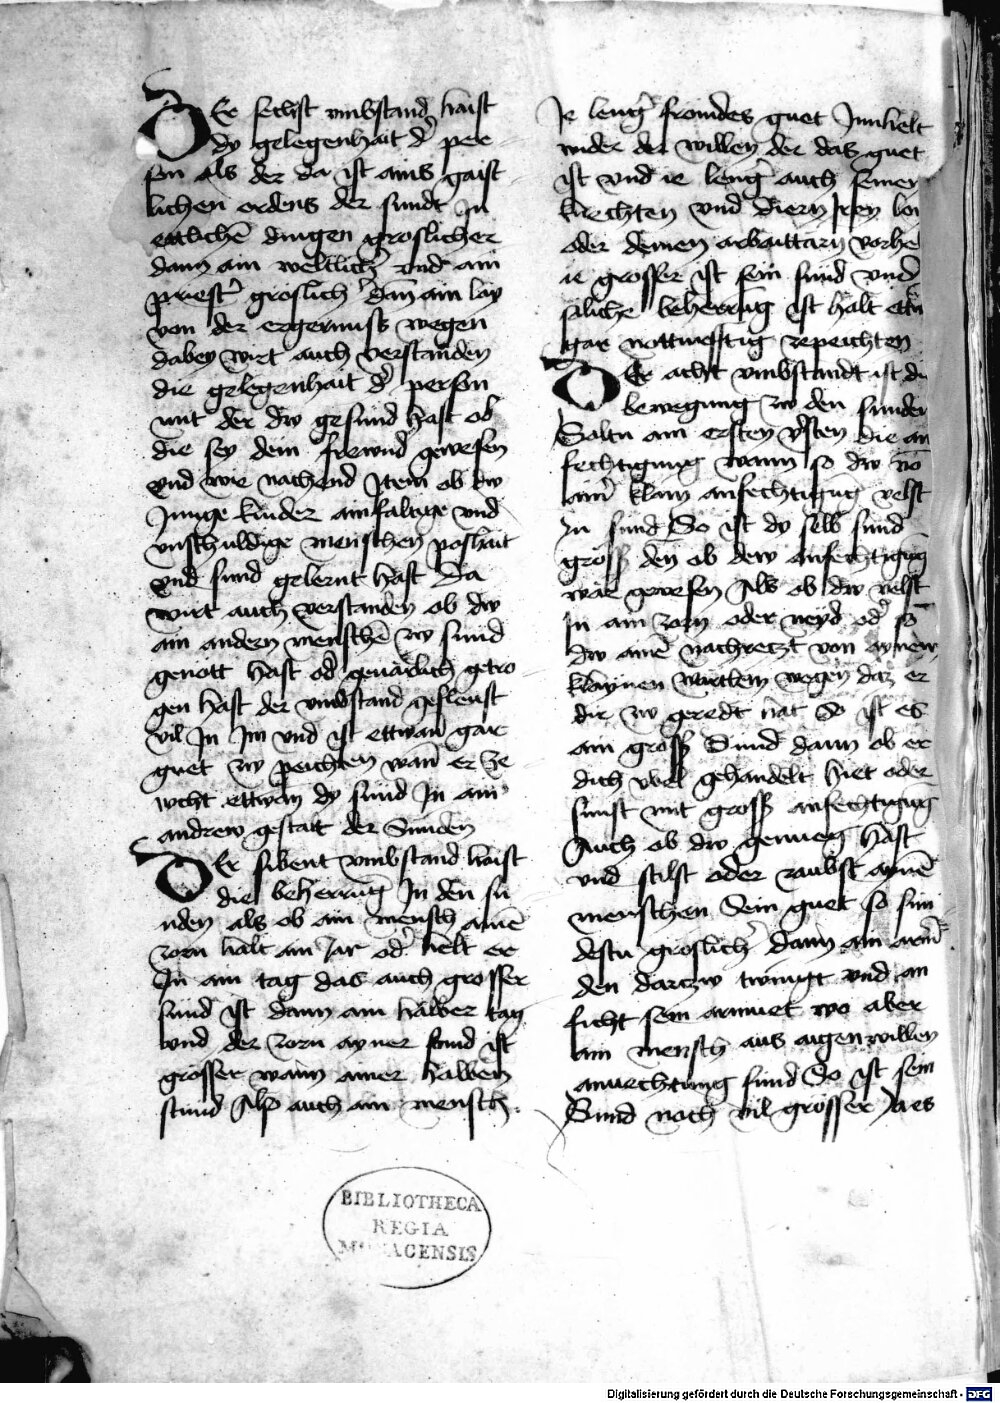 Der sechst vmbstand haist
dy gelegenhait d' per-
son als der da ist ains gaist
lichen ordens der sundt In
ettlichē dingen groslicher
dann ain weltlich' vnd ain
priest' gröslich' dan̄ ain lay
von der ergernuss wegen
dabey wirt auch verstanden
die gelegenhait d' person
mit der dw gesund hast ob
die sey dein frewnd gewesen
vnd wie nachend Item ob dw
Junge kinder ainfaltige vnd
vnschuldige menschen poshait
vnd sund gelernt hast Da
wirt auch verstanden ob dw
ain andern menschē zu sund
genött hast od' geuärlich getro
gen hast der vmbstand gefleust
vil In Im vnd ist ettwan gar
guet zw peichten wan̄ er ze
wcht ettwan dy sund In ain
andrew gestalt der Sunden
Der sibent vmbstand haist
die beherrūg In den su
nden als ob ain mensch ainē
zorn halt ain Jar od' helt er
In ain tag das auch grosser
sund ist dann ain halber tag
vnd der zorn ayner stund ist
grösser wann ainer halben
stund Also auch ain mensch
Je leng' fromdes guet Innhelt
wider den willen der das guet
ist vnd ie leng' auch seinen
knechten vnd diern Iren lon
oder deinen arbaittarn vorhe
ie grosser ist sein sund vnd
söliche beherrūg ist halt
gar nottürfftig zepeichten
Der acht vmbstandt ist die
bewegung zw den sunden
Soltu am ersten die an
fechtigung wann so dw vō
ain' klain anfechtigūg velst
In sund So ist dy selb sund
gröss' den ob dew anfechtigūg
wär gewesen Als ob dw velst
In ain zorn oder neyd od' so
dw ainē nachreczt von aynem
klaynen wörtlein wegen daz er
dir zw geredt hat So ist es
ain gröss' Sund dann ob er
dich vbel gehandelt hiet oder
sunst mit gross' anfechtigūg
Auch ob dw genueg hast
vnd stilst oder raubst ainē
menschen Sein guet so sun
destu gröslich' dann ain arm'
den darczw twingt vnd an
ficht sein armuet wo aber
ain mensch aus aigen willen
anuechtung sund So ist sein
Sund noch vil grösser Ja es
BIBLIOTHECA
REGIA
MONACENSIS
Digitalisierung gefördert durch die Deutsche Forschungsgemeinschaft - DFG